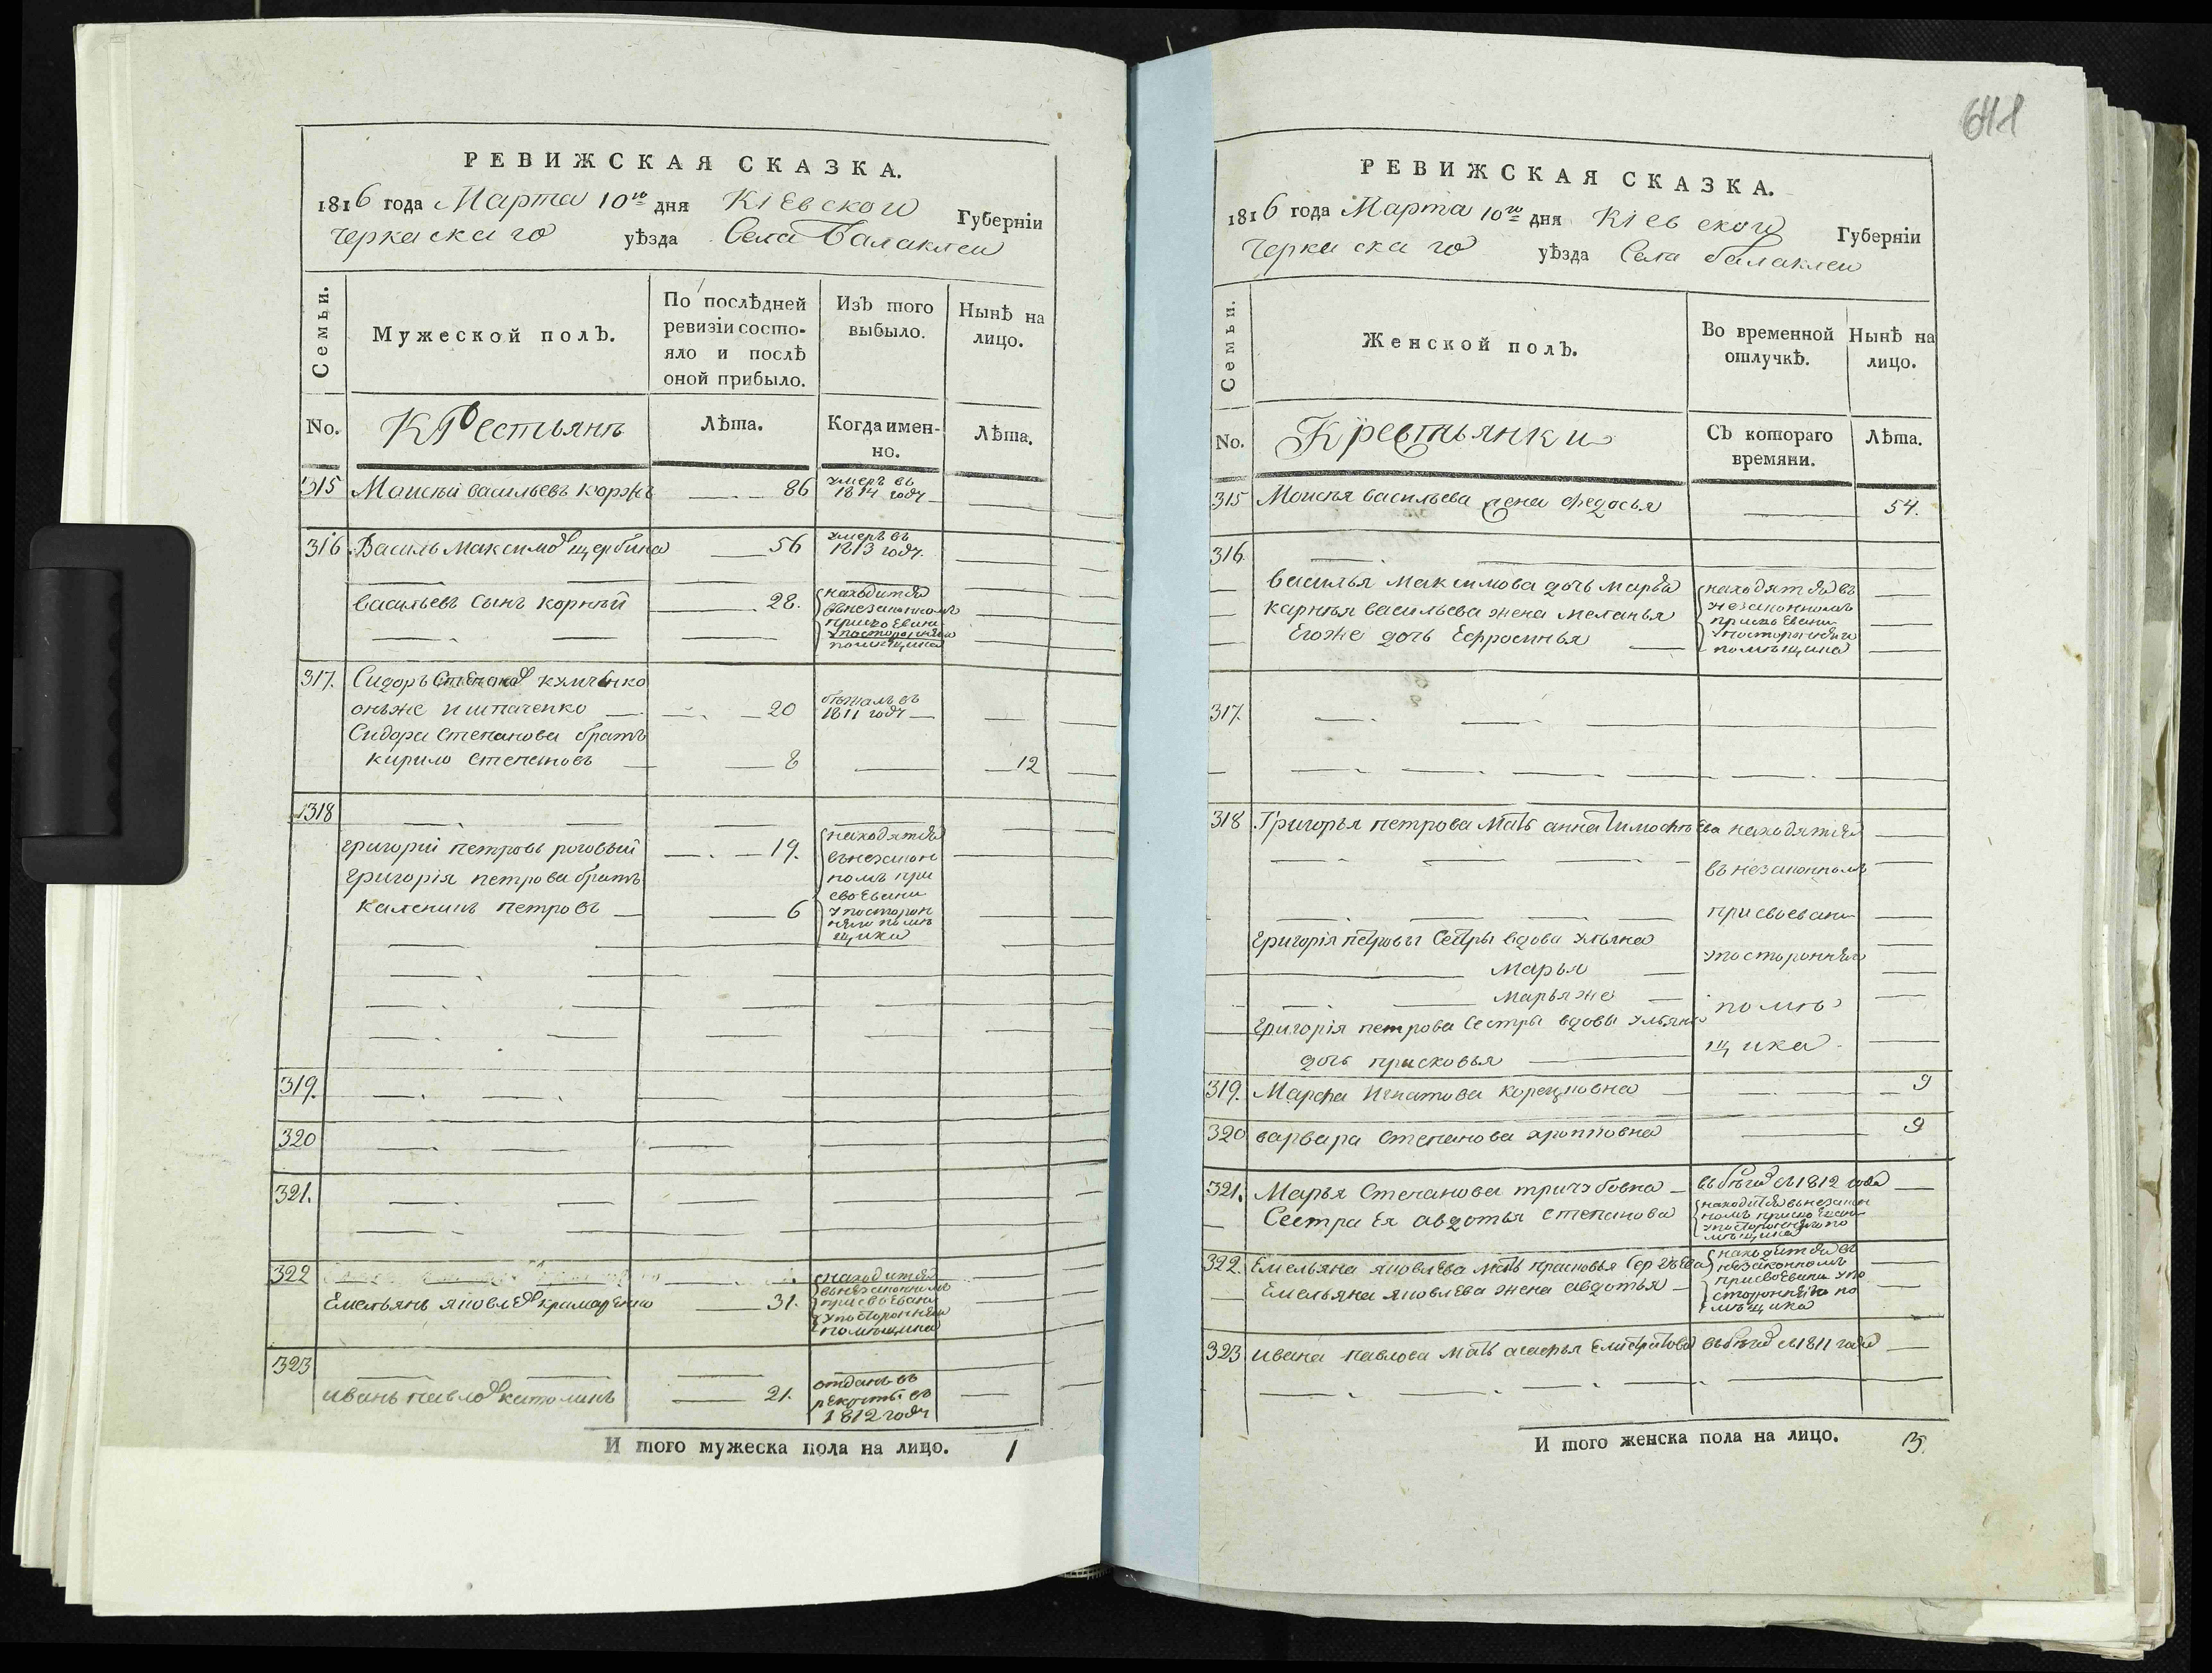 РЕВИЖСКАЯ СКАЗКА.
1816 года Марта 10го дня Кіевской Губерніи
Черкаскаго уѣзда Села Балаклеи
Семьи.
Мужеской полъ.
По послѣдней ревизіи состо-
яло и послѣ
оной прибыло.
Изъ того
выбыло.
Нынѣ на
лицо.
No.
Крестьянъ
Лѣта.
Когда имен-
но.
Лѣта.
315 Моисѣй васильевъ коржъ 86 умеръ въ
1814 году
316 Василь Максимов щербина 56 умеръ въ
1813 году.
васильевъ сынъ корнѣй 28. находится
внезаконномъ
присвоении
упосторонняго
помѣщика
317. Сидоръ Степанов
онъже 20 бѣжалъ въ
1811 году
Сидора Степанова братъ
кирило степановъ 8 12
318
григорій петровъ роговый 19. находятся
внезакон
номъ при
своевани
упосторон
няго помѣ
щика
Григорія петрова братъ
каленикъ петровъ 6
319.
320
321.
322
Емельянъ яковлев крамаренко 31. находится
внезаконномъ
присвоевани
упосторонняго
помѣщика
323
иванъ павлов 21. отданъ въ
рекруты въ
1812 году
И того мужеска пола на лицо. 1
641
РЕВИЖСКАЯ СКАЗКА.
1816 года Марта 10го дня Кіевской Губерніи
Черкаскаго уѣзда Села балаклеи
Семьи.
Женской полъ.
Во временной
отлучкѣ.
Нынѣ на
лицо.
No.
Крестьянки
Съ котораго
времяни.
Лѣта.
315 Моисѣя васильева жена федосья 54.
316.
василья максимова дочь марья находятся въ
незаконномъ
присвоевани
упосторонняго
помѣщика
карнѣя васильева жена меланья
Егоже дочь Ефросинья
317.
318 Григорья петрова мать анна тимофѣева находятся
въ незаконномъ
присвоевани
Григорія петрова сестры вдова ульяна упосторонняго
Марья
марьяже помѣ
Григорія петрова сестры вдовы ульяны
дочь присковья щика
319. Марфа Игнатова 9
320 варвара Степанова 9
321. Марья Степанова тризубовна вбѣгах с1812 года
Сестра Ея авдотья степанова находится внезакон
номъ присвоевани
упосторонняго по
мѣщика
322. Емельяна яковлева мать прасковья Сергѣева находится въ
незаконномъ
присвоевани упо
сторонняго по
мѣщика
Емельяна яковлева жена авдотья
323 ивана павлова мать агафья Елистратова вбѣгах с1811 года
И того женска пола на лицо. 3.